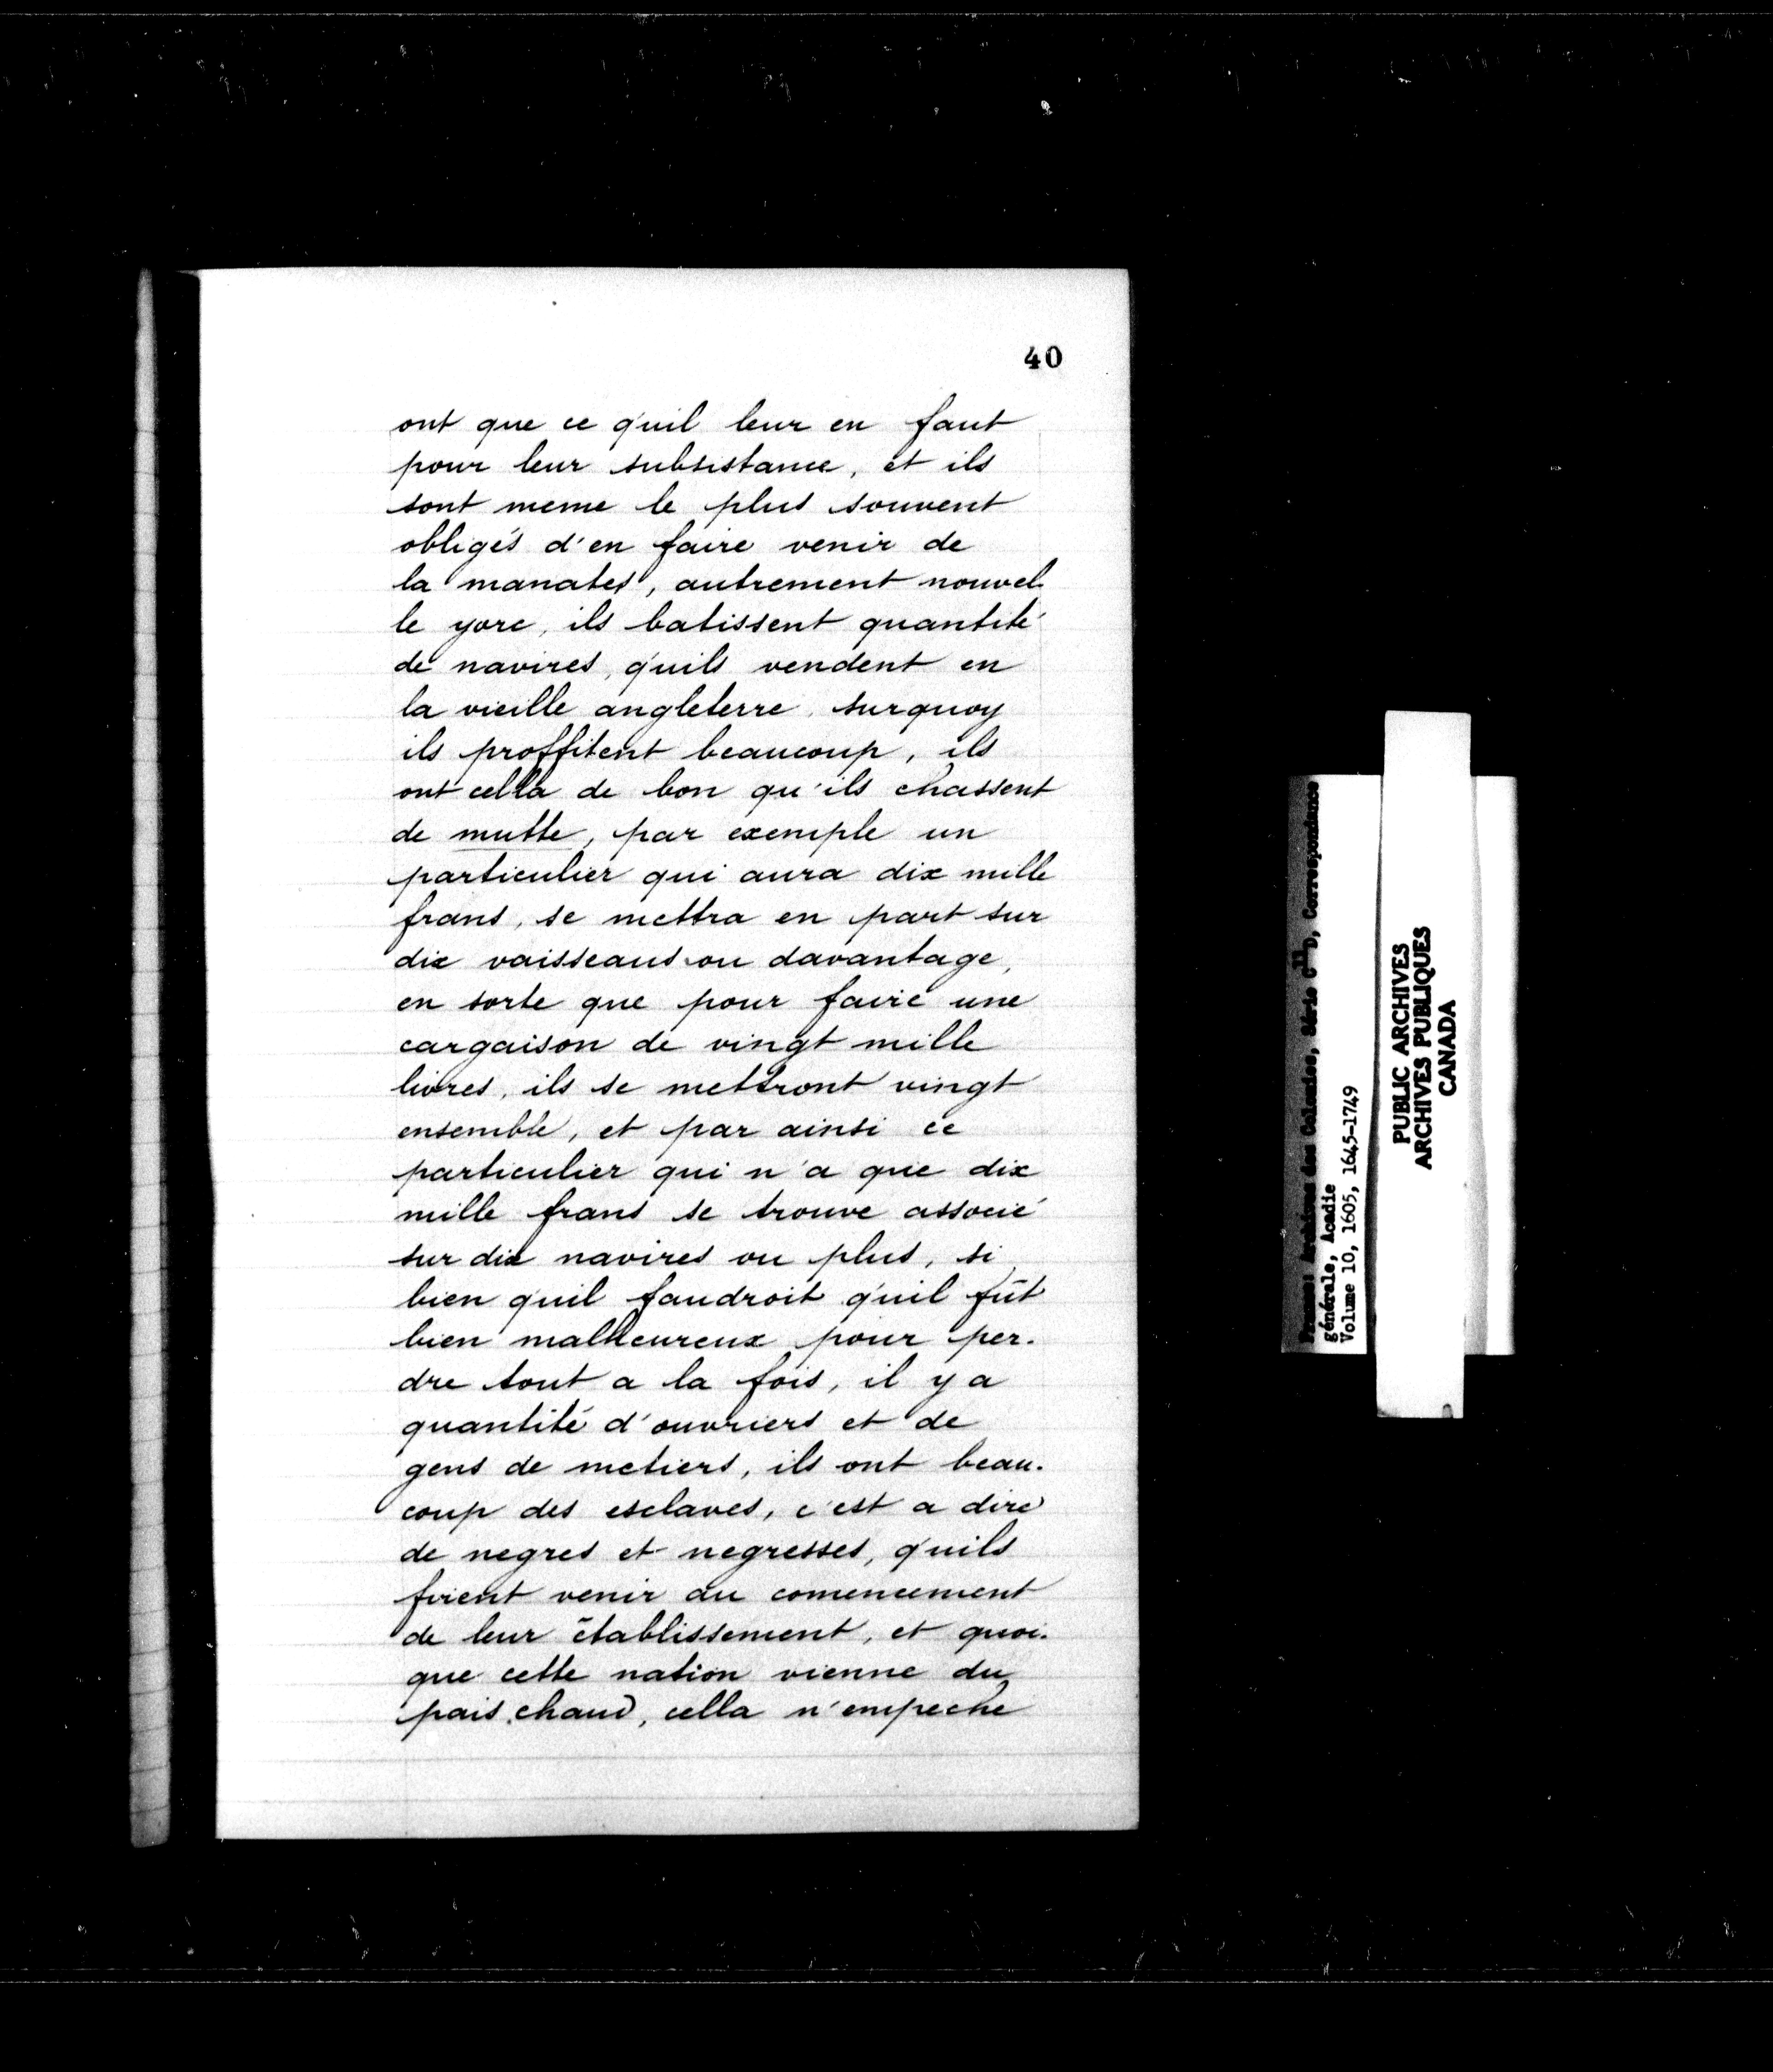 40
ont que ce q'uil leur en faut
pour leur subsistance, et ils
sont meme le plus souvent
obligés d'en faire venir de
la manates, autrement nouvel-
le yorc, ils batissent quantité
de navires, q'uils vendent en
la vieille angleterre, surquoy
ils proffitent beaucoup, ils
ont cella de bon qu'ils chassent
de mutte, par exemple un
particulier qui aura dix mille
frans, se mettra en part sur
dix vaisseaus ou davantage,
en sorte que pour faire une
cargaison de vingt mille
livres, ils se mettront vingt
ensemble, et par ainsi ce
particulier qui n'a que dix
mille frans se trouve associé
sur dix navires ou plus, si
bien q'uil faudroit q'uil fût
bien malheureux pour per-
dre tout a la fois, il y a
quantité d'ouvriers et de
gens de metiers, ils ont beau-
coup des esclaves, c'est a dire
de negres et negresses, q'uils
firent venir au comencement
de leur établissement, et quoi-
que cette nation vienne du
pais chaud, cella n'empeche
France: Archives des Colonies, Série C11D, Correspondance
générale, Acadie
Volume 10, 1605, 1645-1749
PUBLIC ARCHIVES
ARCHIVES PUBLIQUES
CANADA